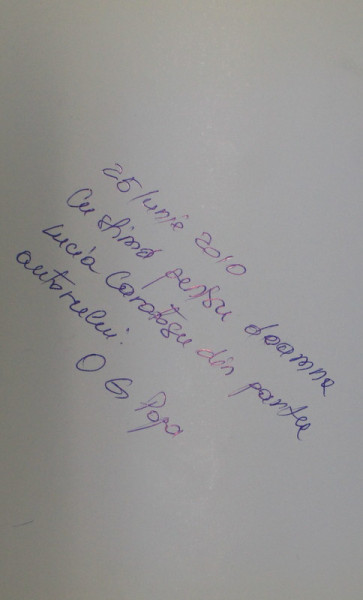 25 Iunie 2010
Cu stimă pentru doamna
Lucia Caratașu din partea
autorului.
O G Popa